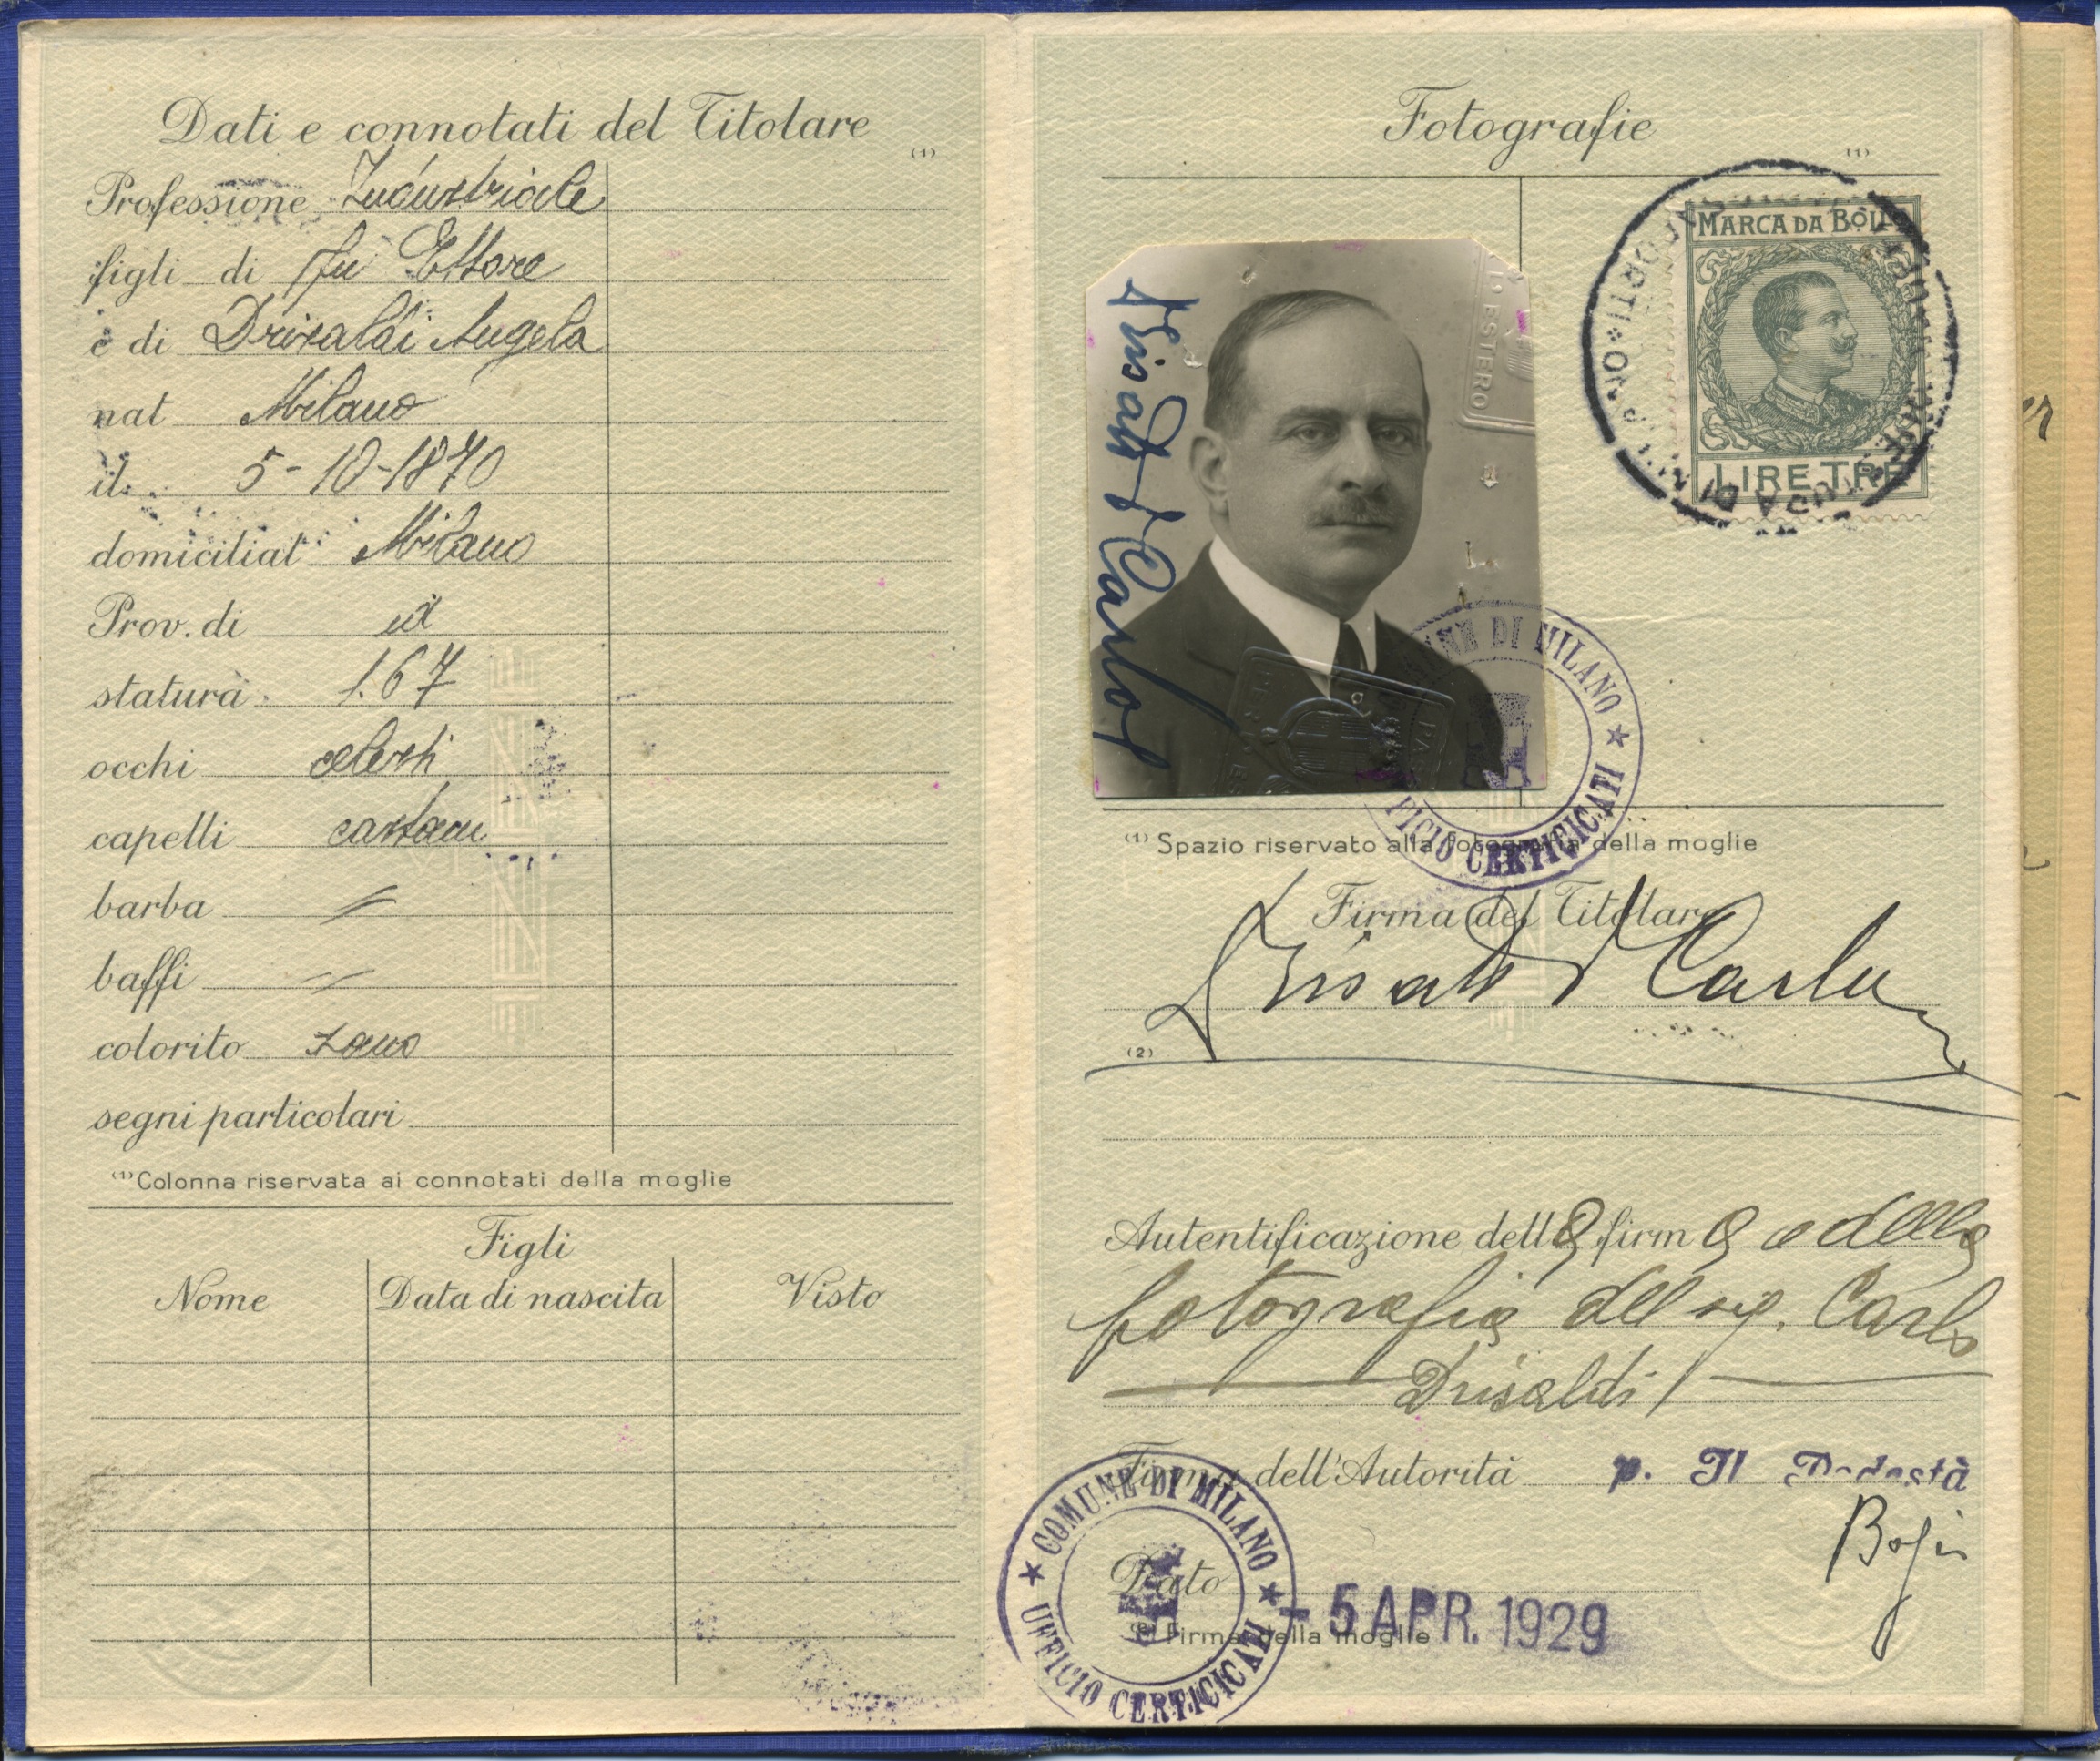 Dati e connotati del Titolare
(1)
Professione Industriale
figli di fu Ettore
e di Drisaldi Angela
nat Milano
il 5-10-1870
domiciliat Milano
Prov. di id
statura 1.67
occhi celesti
capelli castani
barba "
baffi "
colorito sano
segni particolari
(1) Colonna riservata ai connotati della moglie
Figli
Nome Data di nascita Visto
Fotografie
(1)
MARCA DA BOLLO
LIRE TRE
Drisaldi Carlo
ESTERO
COMUNE DI MILANO
UFFICIO CERTIFICATI
(1) Spazio riservato alla fotografia della moglie
Firma del Titolare
Drisaldi Carlo
(2)
Autentificazione della firma e della
fotografia del sig. Carlo
Drisaldi
Firma dell'Autorità p. Il Podestà
COMUNE DI MILANO
UFFICIO CERTIFICATI
Dato - 5 APR. 1929
(2) Firma della moglie